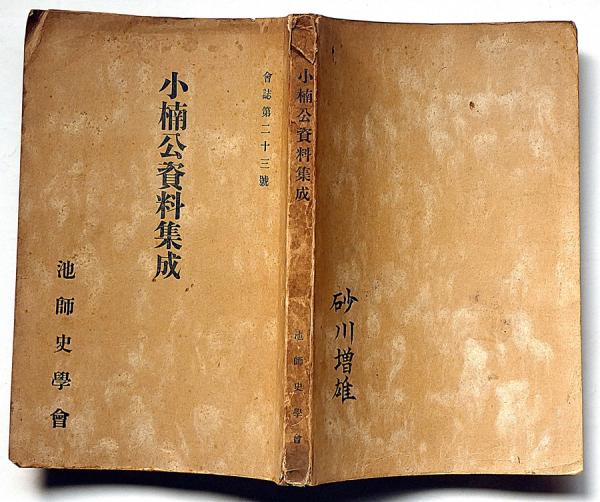 會誌第二十三號
小楠公資料集成
池師史學會
小楠公資料集成
池師史學會
砂川増雄